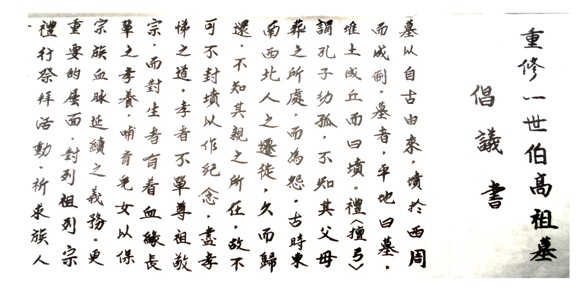 重修一世伯高祖墓
倡議書
墓以自古由來，墳於西周
而成制，墓者，平地曰墓，
堆土成丘而曰墳。禮〈檀弓〉
謂孔子幼孤，不知其父母
葬之所處，而為怨。古時東
南西北人之遷徙，久而歸
還，不知其親之所在，故不
可不封墳以作紀念，盡孝
悌之道，孝者不單尊祖敬
宗，而對生者有着血緣長
輩之孝養，哺育兒女以保
宗族血脉延續之義務。更
重要的層面，對列祖列宗
禮行祭拜活動，祈求族人